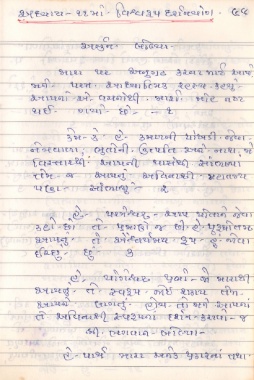 અધ્યાય-૧૧મો. વિશ્વરૂપ દર્શનયોગ.
અર્જુન બોલ્યા-
મારા પર અનુગ્રહ કરવા માટે આપે
જે પરમ આધ્યાત્મિક રહસ્ય કહ્યું
આપનાં એ વચનોથી મારો મોહ નષ્ટ
થઈ ગયો છે - ૧
કેમ કે હે કમળની પાંખડી જેવા
નેત્રવાળા, ભૂતોની ઉત્પત્તિ અને નાશ મેં
વિસ્તારથી આપની પાસેથી સાંભળ્યા
તેમ જ આપનું અવિનાશી મહાત્મ્ય
પણ સાંભળ્યું ૨
હે પરમેશ્વર આપ પોતાને જેવા
કહો છો તે પ્રમાણે જ છો હે પુરુષોત્તમ
આપનું તે ઐશ્વર્યમય રૂપ હું જોવા
ઈચ્છું છું ૩
હે યોગેશ્વર પ્રભો જો મારાથી
આપનું તે સ્વરૂપ જોઈ શકાય તેમ
આપને લાગતું હોય તો મને આપના
તે અવિનાશી સ્વરૂપનાં દર્શન કરાવો - ૪
શ્રી ભગવાન બોલ્યા-
હે પાર્થ મારા અનેક પ્રકારનાં તથા